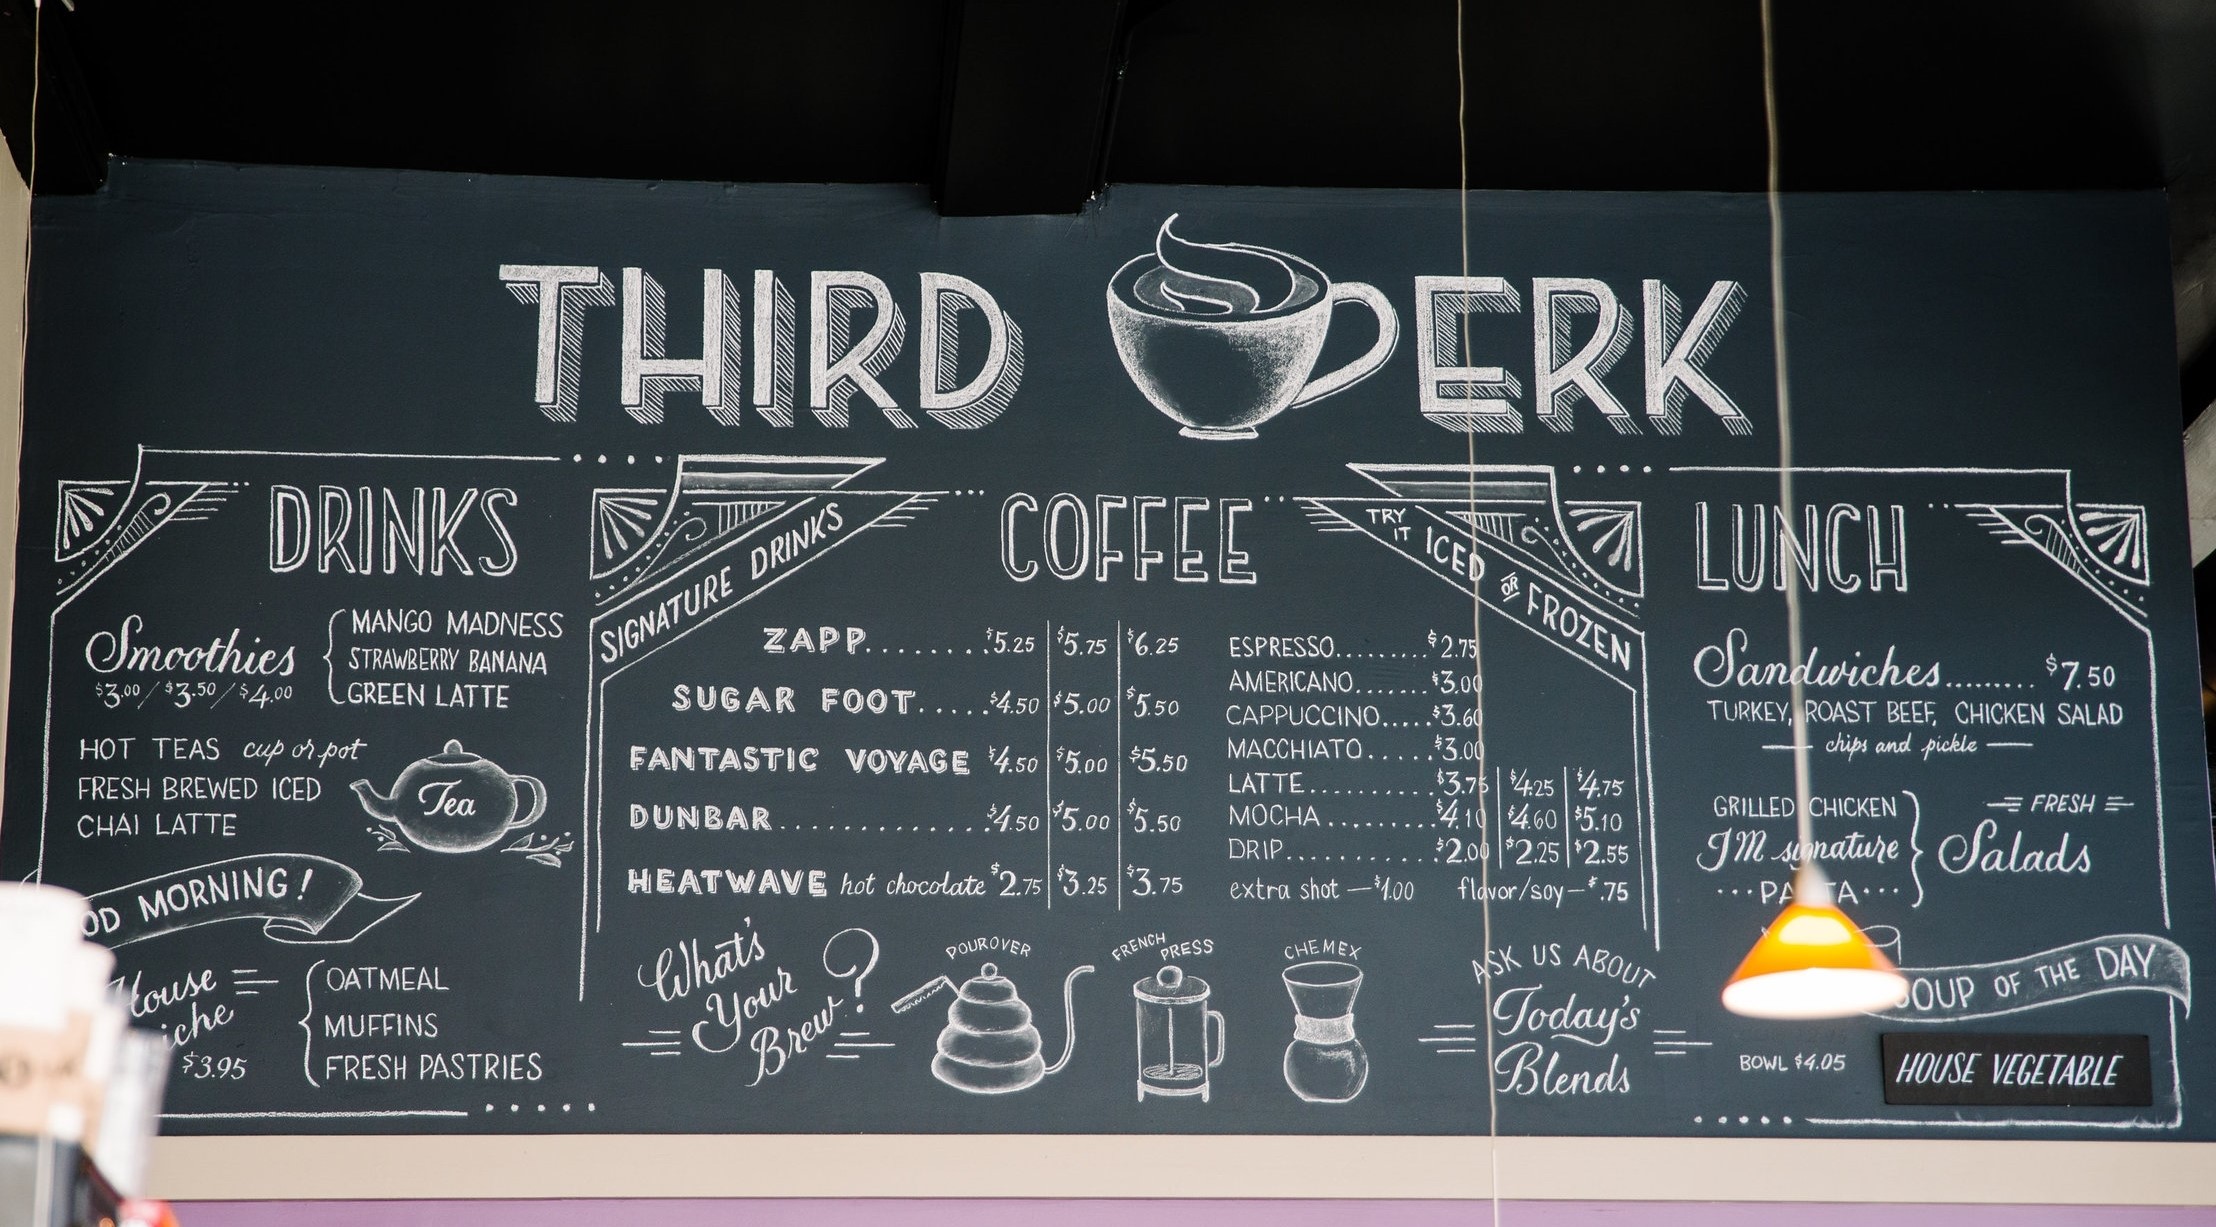 THIRD PERK
DRINKS
Smoothies
$3.00 / $3.50 / $4.00
MANGO MADNESS
STRAWBERRY BANANA
GREEN LATTE
HOT TEAS cup or pot
FRESH BREWED ICED
CHAI LATTE
Tea
MORNING!
House
$3.95
OATMEAL
MUFFINS
FRESH PASTRIES
SIGNATURE DRINKS
COFFEE
TRY IT ICED OR FROZEN
ZAPP........$5.25 $5.75 $6.25
SUGAR FOOT.....$4.50 $5.00 $5.50
FANTASTIC VOYAGE $4.50 $5.00 $5.50
DUNBAR..............$4.50 $5.00 $5.50
HEATWAVE hot chocolate $2.75 $3.25 $3.75
ESPRESSO.........$2.75
AMERICANO.......$3.00
CAPPUCCINO.....$3.60
MACCHIATO.....$3.00
LATTE...........$3.75 $4.25 $4.75
MOCHA.........$4.10 $4.60 $5.10
DRIP.............$2.00 $2.25 $2.55
extra shot —$1.00 flavor/soy—$.75
What's
Your
Brew?
POUROVER
FRENCH PRESS
CHEMEX
ASK US ABOUT
Today's
Blends
LUNCH
Sandwiches.........$7.50
TURKEY, ROAST BEEF, CHICKEN SALAD
chips and pickle
GRILLED CHICKEN
JM signature
PASTA
FRESH
Salads
SOUP OF THE DAY
BOWL $4.05
HOUSE VEGETABLE